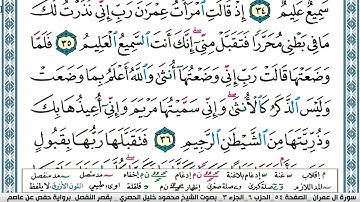 سَمِيعٌ عَلِيمٌ ٣٤ إِذْ قَالَتِ ٱمْرَأَتُ عِمْرَٰنَ رَبِّ إِنِّى نَذَرْتُ لَكَ
مَا فِى بَطْنِى مُحَرَّرًا فَتَقَبَّلْ مِنِّىٓ إِنَّكَ أَنتَ ٱلسَّمِيعُ ٱلْعَلِيمُ ٣٥ فَلَمَّا
وَضَعَتْهَا قَالَتْ رَبِّ إِنِّى وَضَعْتُهَآ أُنثَىٰ وَٱللَّهُ أَعْلَمُ بِمَا وَضَعَتْ
وَلَيْسَ ٱلذَّكَرُ كَٱلْأُنثَىٰ وَإِنِّى سَمَّيْتُهَا مَرْيَمَ وَإِنِّىٓ أُعِيذُهَا بِكَ
وَذُرِّيَّتَهَا مِنَ ٱلشَّيْطَٰنِ ٱلرَّجِيمِ ٣٦ فَتَقَبَّلَهَا رَبُّهَا بِقَبُولٍ
سورة آل عمران الصفحة ٥٤ الحزب ٦ الجزء ٣ بصوت الشيخ محمود خليل الحصري بقصر المنفصل برواية حفص عن عاصم